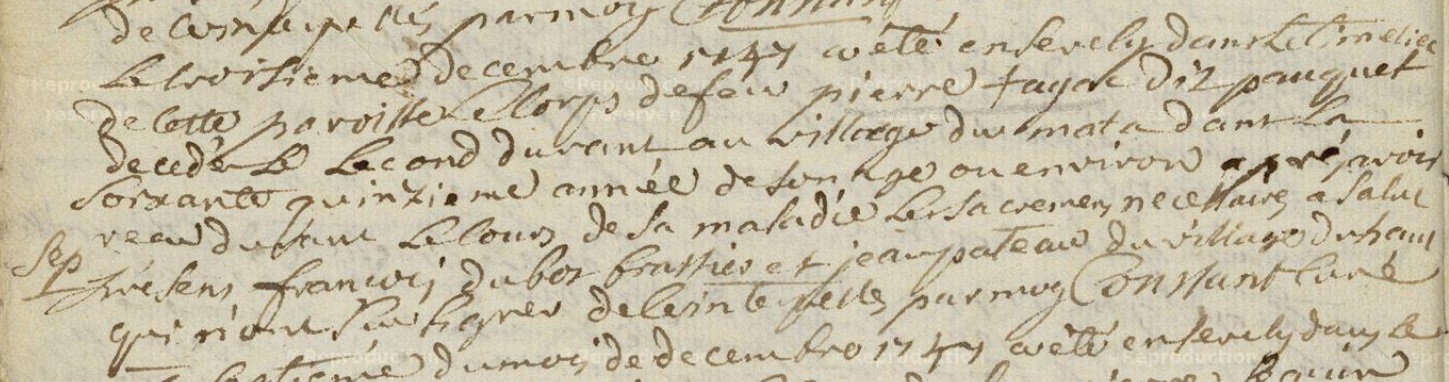 parmoy Constant
Le troisieme decembre 1747 a été ensevely dans le cimetiere
de cette paroisse le corps de feu pierre fayac dit pauquet
decedé le second durant au village du mata dans la
soixante quinzieme année de son age ou environ apres avoir
receu durant le cours de sa maladie les sacremens necessaires a salut
Sep présens francois dubos brassier et jean pateau du village du haut
qui n'ont sceu signer de ce interpellés parmoy Constant curé
Le septieme du mois de decembre 1747 a été ensevely dans le